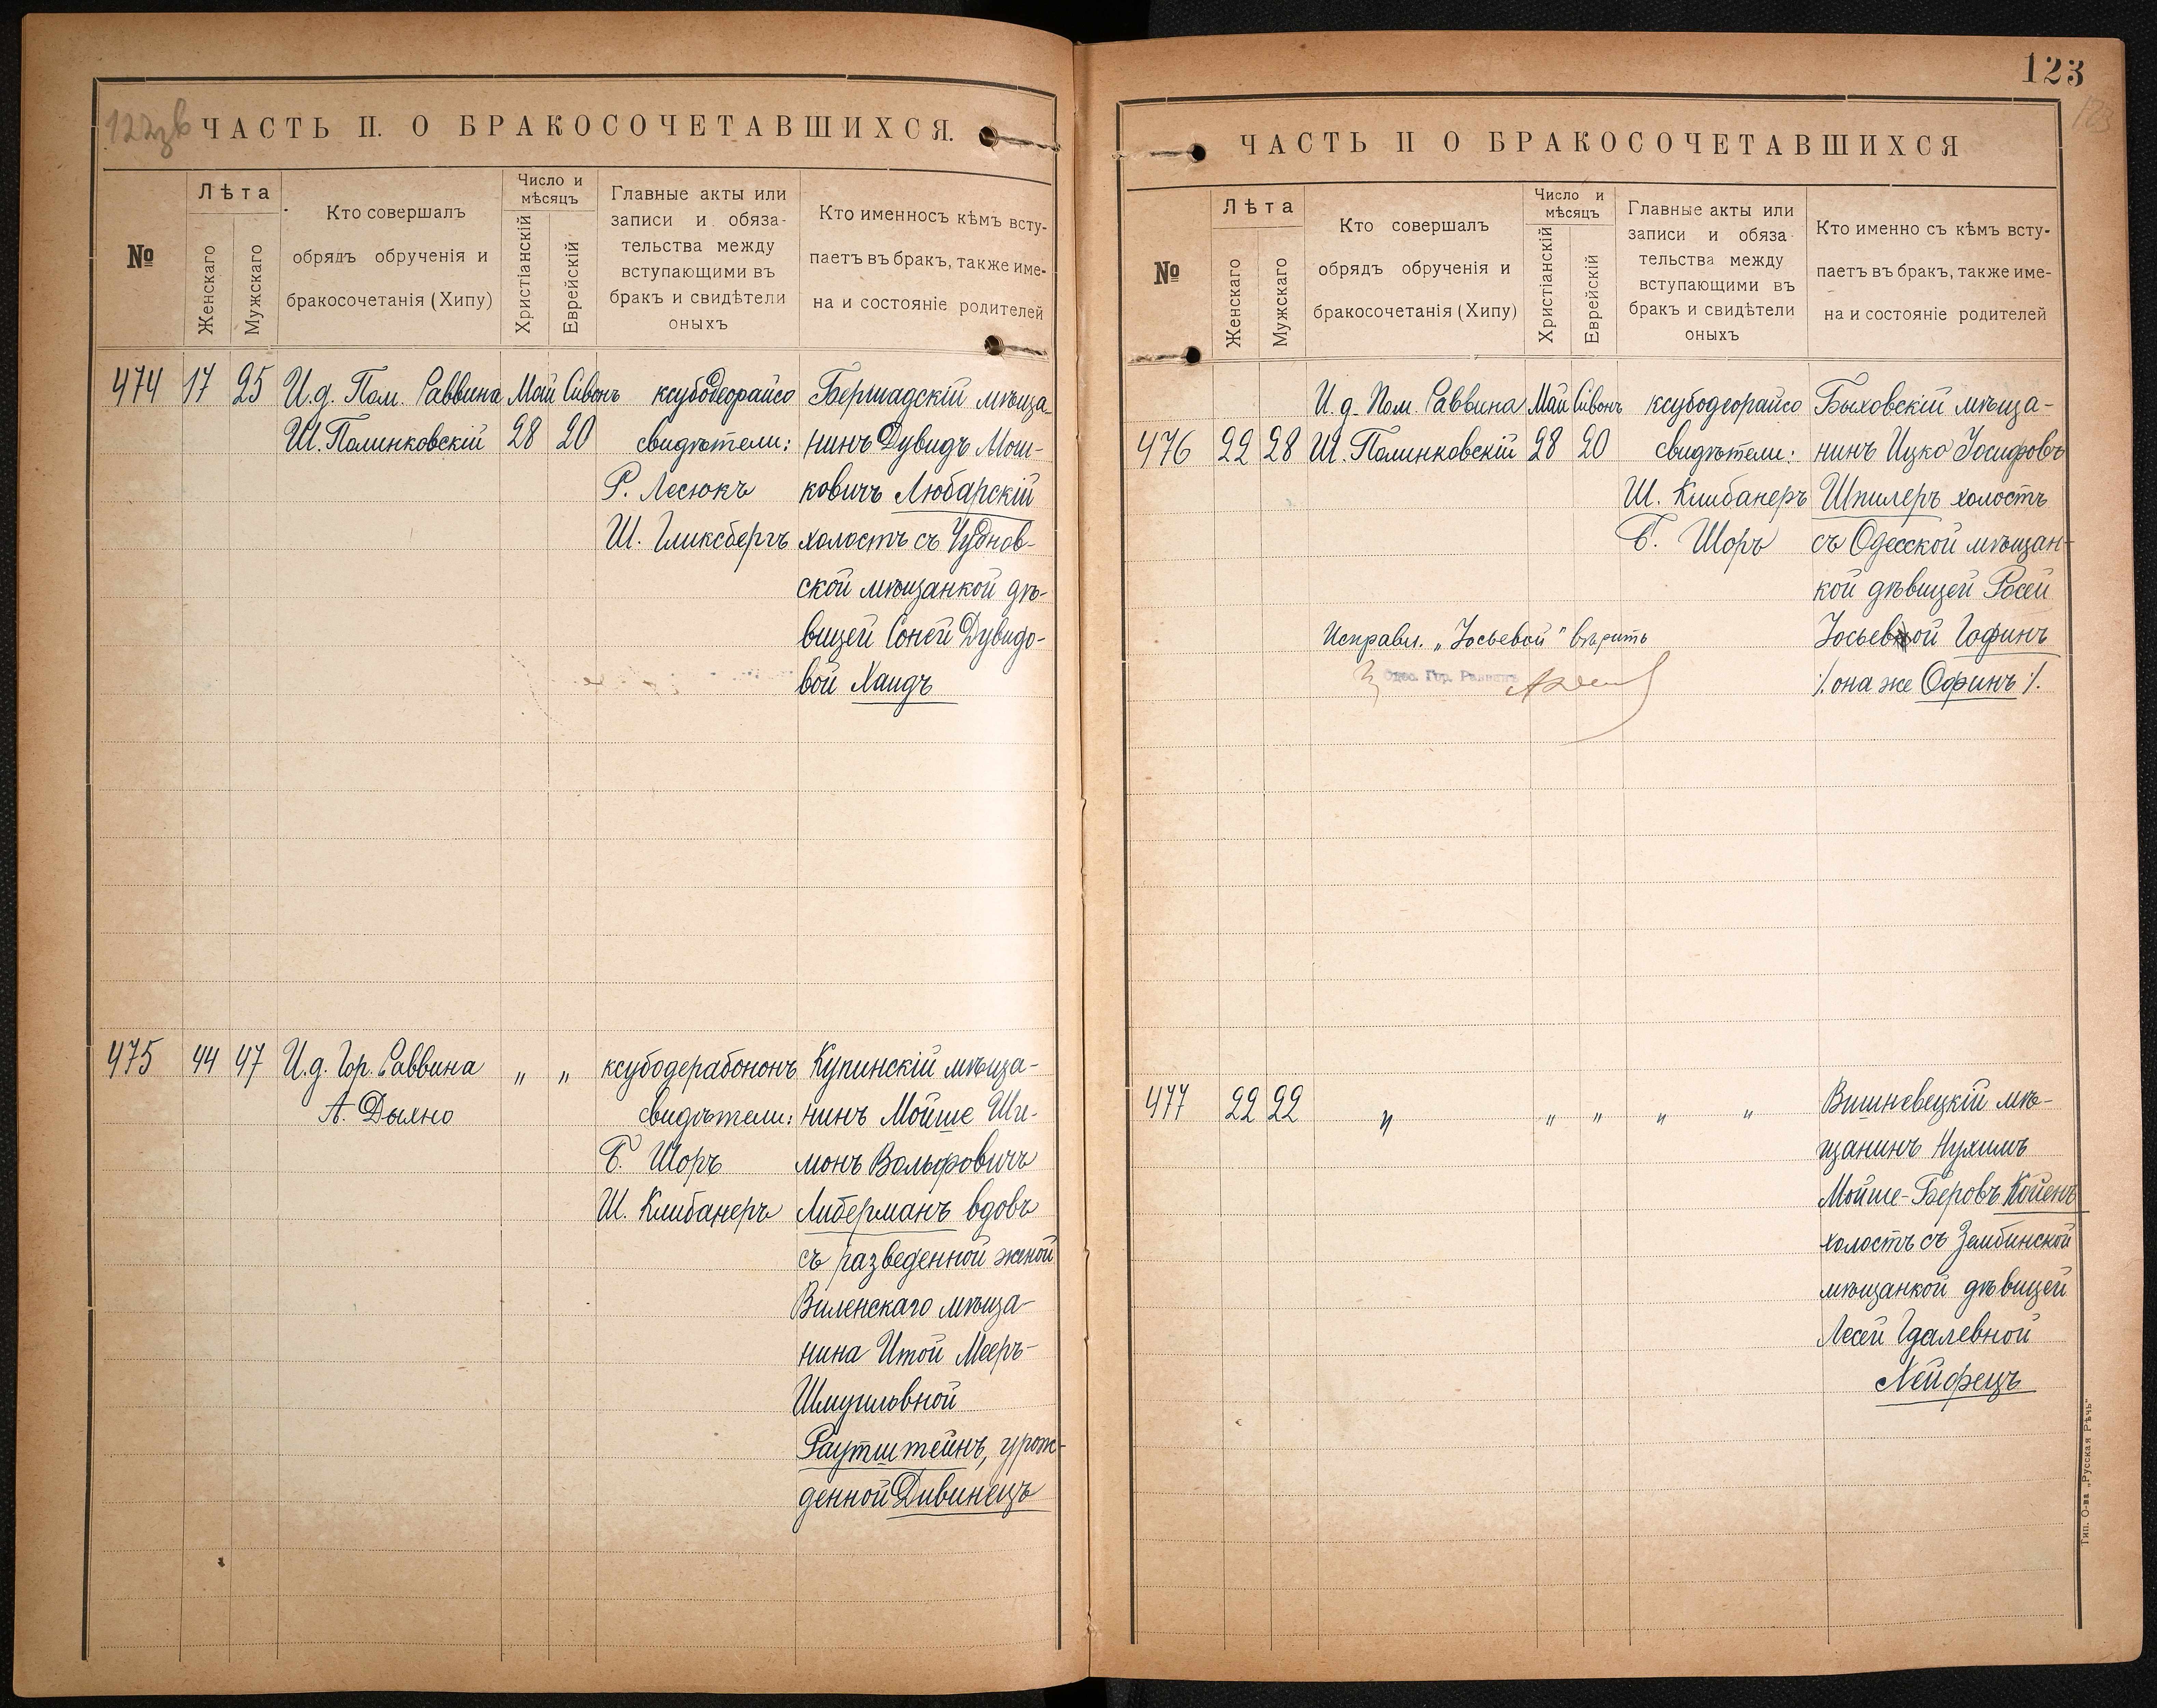 122зв
ЧАСТЬ II. О БРАКОСОЧЕТАВШИХСЯ.
№
Лѣта
Женскаго
Мужскаго
Кто совершалъ
обрядъ обрученія и
бракосочетанія (Хипу)
Число и
мѣсяцъ
Христіанскій
Еврейскій
Главные акты или
записи и обяза-
тельства между
вступающими въ
бракъ и свидѣтели
оныхъ
Кто именносъ кѣмъ всту-
паетъ въ бракъ, также име-
на и состояніе родителей
474 17 25
И.д. Пом. Раввина
Ш. Полинковскій
Май Сивонъ
28 20
ксубодеорайсо
свидѣтели:
Р. Лесюкъ
Ш. Гликсбергъ
Бершадскій мѣща-
нинъ Дувидъ Мош-
ковичъ Любарскій
холостъ съ Чуднов-
ской мѣщанкой дѣ-
вицей Соней Дувидо-
вой Хаидъ
475 44 47
И.д. Гор. Раввина
А. Дыхно
„ „
ксубодерабононъ
свидѣтели:
Б. Шоръ
Ш. Клибанеръ
Купинскій мѣща-
нинъ Мойше Ши-
монъ Вольфовичъ
Либерманъ вдовъ
съ разведенной женой
Виленскаго мѣща-
нина Итой Мееръ-
Шмуильвной
Раутштейнъ, урож-
денной Дивинецъ
123
123
ЧАСТЬ II О БРАКОСОЧЕТАВШИХСЯ
№
Лѣта
Женскаго
Мужскаго
Кто совершалъ
обрядъ обрученія и
бракосочетанія (Хипу)
Число и
мѣсяцъ
Христіанскій
Еврейскій
Главные акты или
записи и обяза
тельства между
вступающими въ
бракъ и свидѣтели
оныхъ
Кто именно съ кѣмъ всту-
паетъ въ бракъ, также име-
на и состояніе родителей
476 22 28
И.д. Пом. Раввина
Ш. Полинковскій
Май Сивонъ
28 20
ксубодеорайсо
свидѣтели:
Ш. Клибанеръ
Б. Шоръ
Быховскій мѣща-
нинъ Ицко Іосифовъ
Шпилеръ холостъ
съ Одесской мѣщан-
кой дѣвицей Росей
Іосьевой Гофинъ
/. она же Офинъ /.
Исправл. „Іосьевой" вѣрить
Одес. Гор. Раввинъ
477 22 22
„ „ „ „ „
Вишневецкій мѣ-
щанинъ Нухимъ
Мойше-Беровъ Койенъ
холостъ съ Зембинской
мѣщанкой дѣвицей
Лесей Гдалевной
Хейфецъ
Тип. О-ва „Русская Рѣчь"